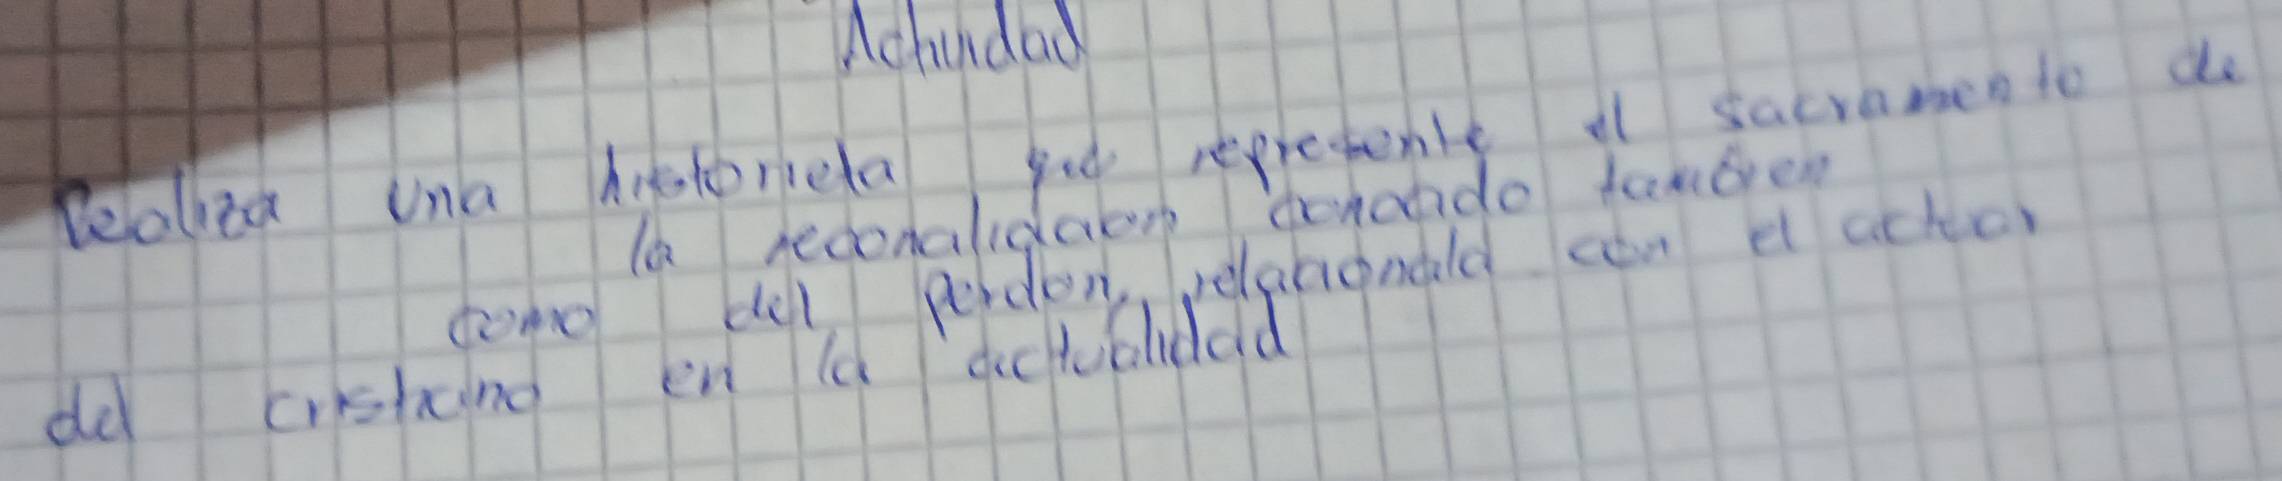 Actividad
Realiza una historieta que represente el sacramento de
la reconaligacion donando tambien
como del perdon, relacionala con el actuar
del cristiano en la actualidad